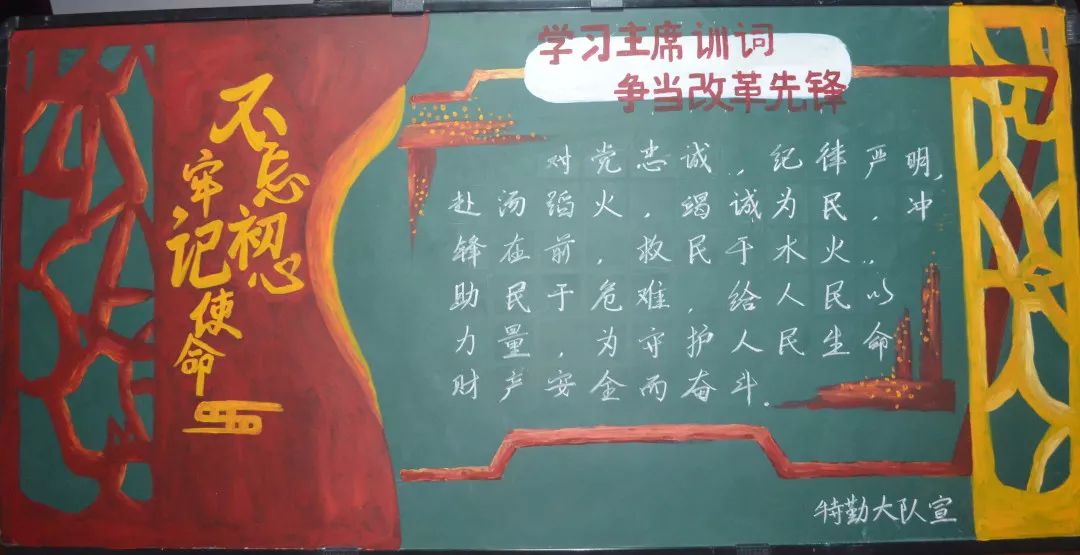 不忘初心
牢记使命
学习主席训词
争当改革先锋
对党忠诚，纪律严明，
赴汤蹈火，竭诚为民，冲
锋在前，救民于水火，
助民于危难，给人民以
力量，为守护人民生命
财产安全而奋斗。
特勤大队宣